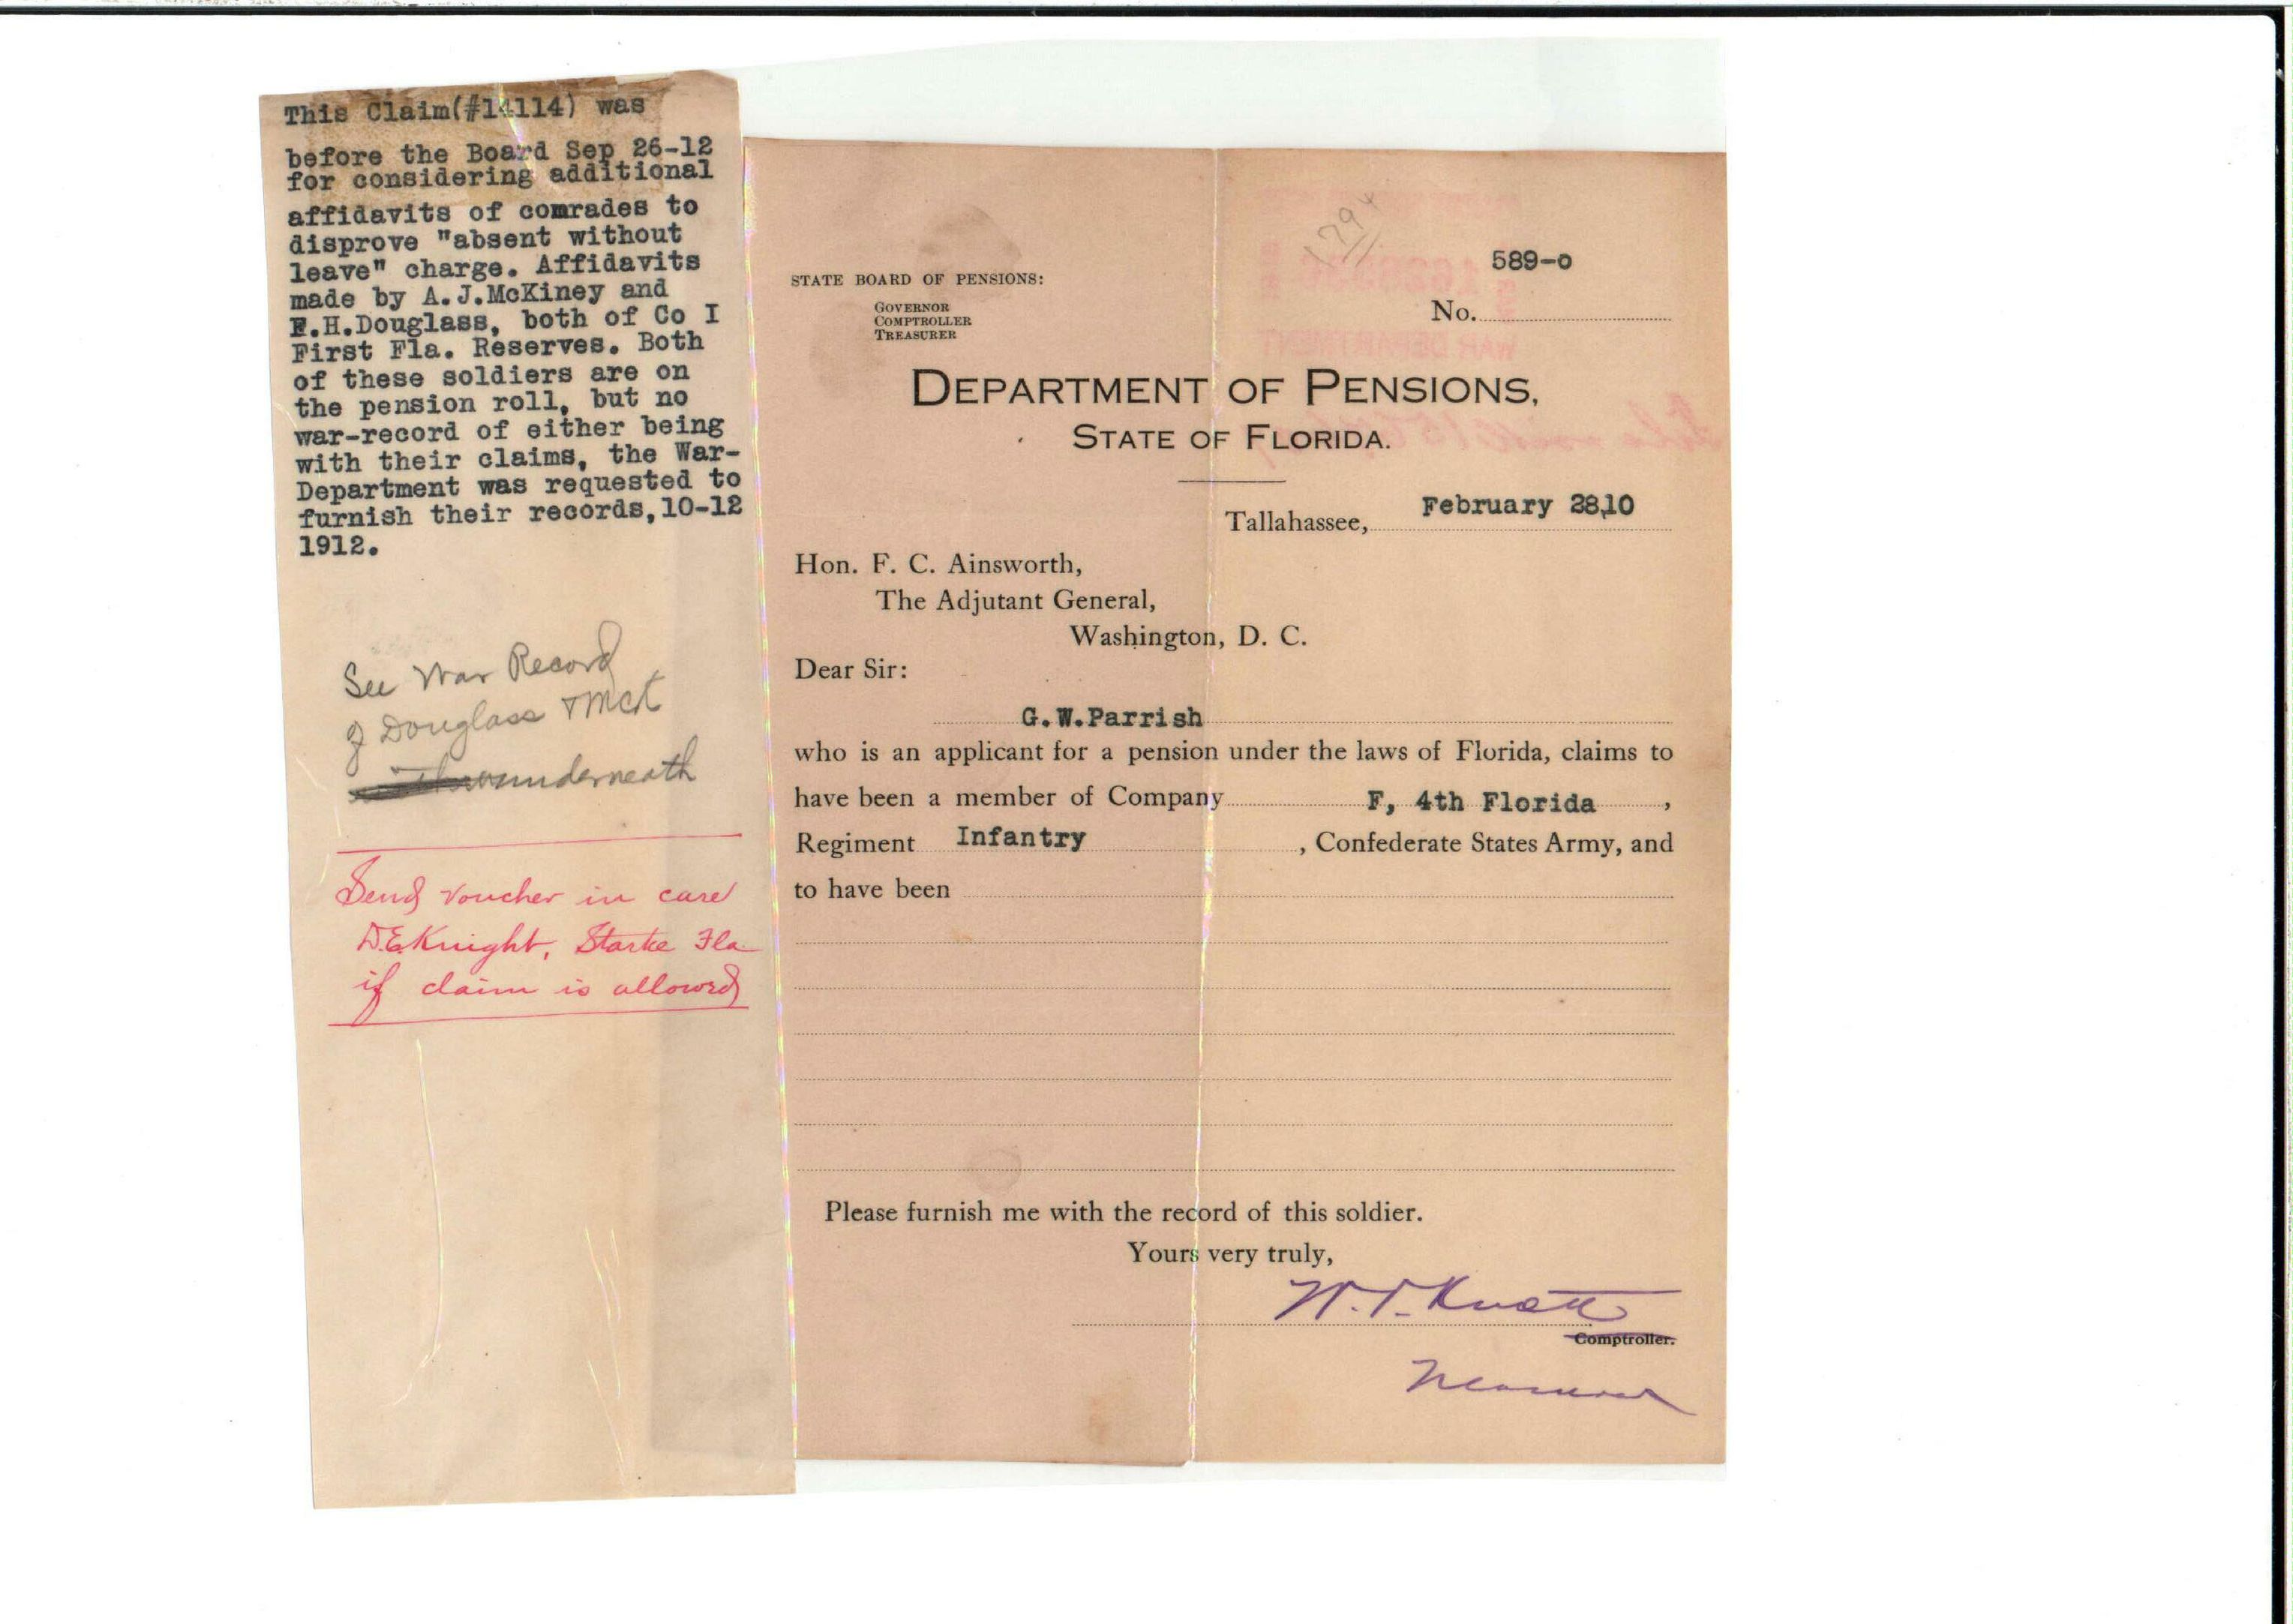 This Claim(#14114) was
before the Board Sep 26-12
for considering additional
affidavits of comrades to
disprove "absent without
leave" charge. Affidavits
made by A.J.McKiney and
F.H.Douglass, both of Co I
First Fla. Reserves. Both
of these soldiers are on
the pension roll, but no
war-record of either being
with their claims, the War-
Department was requested to
furnish their records,10-12
1912.
See War Record
of Douglass & McK
underneath
Send voucher in care
D.E. Knight, Starke Fla
if claim is allowed
STATE BOARD OF PENSIONS:
GOVERNOR
COMPTROLLER
TREASURER
589-o
No.
DEPARTMENT OF PENSIONS,
STATE OF FLORIDA.
Tallahassee, February 28,10
Hon. F. C. Ainsworth,
The Adjutant General,
Washington, D. C.
Dear Sir:
G.W.Parrish
who is an applicant for a pension under the laws of Florida, claims to
have been a member of Company F, 4th Florida ,
Regiment Infantry , Confederate States Army, and
to have been
Please furnish me with the record of this soldier.
Yours very truly,
W.V. Knott
Comptroller.